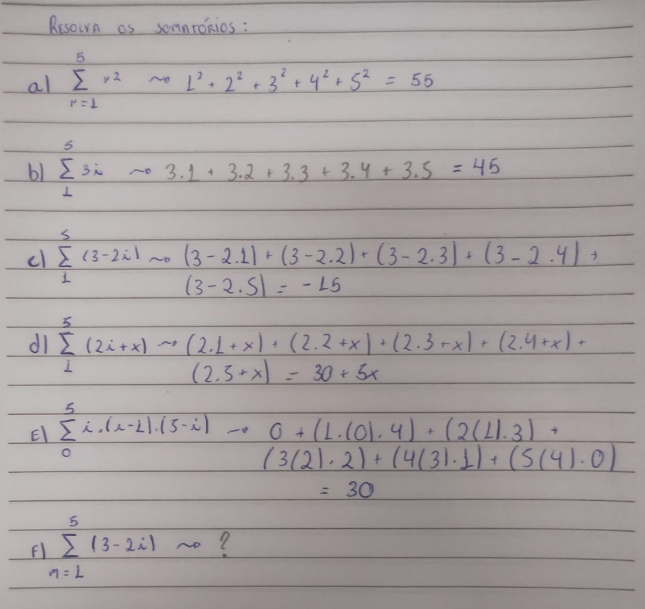 RESOLVA OS SOMATÓRIOS:
a) 5 Σ r=1 r² ~> 1² + 2² + 3² + 4² + 5² = 55
b) 5 Σ 1 3i ~> 3.1 + 3.2 + 3.3 + 3.4 + 3.5 = 45
c) 5 Σ 1 (3-2i) ~> (3-2.1) + (3-2.2) + (3-2.3) + (3-2.4) +
(3-2.5) = -15
d) 5 Σ 1 (2i+x) ~> (2.1+x) + (2.2+x) + (2.3+x) + (2.4+x) +
(2.5+x) = 30 + 5x
E) 5 Σ 0 i.(i-1).(5-i) ~> 0 + (1.(0).4) + (2(1).3) +
(3(2).2) + (4(3).1) + (5(4).0)
= 30
F) 5 Σ n=1 (3-2i) ~> ?